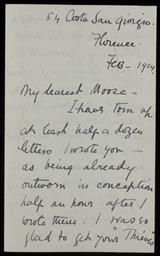 54 Costa San Giorgio.
Florence.
Feb - 1914
My dearest Moose -
I have torn up
at least half a dozen
letters I wrote you -
as being already
outworn in conception
half an hour after I
wrote them. I was so
glad to get your "Thing